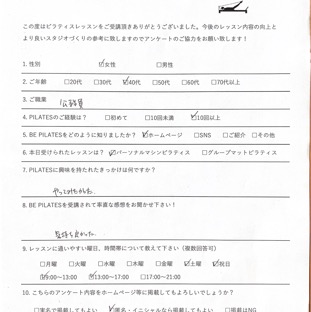 この度はピラティスレッスンをご受講頂きありがとうございました。今後のレッスン内容の向上と
より良いスタジオづくりの参考に致しますのでアンケートのご協力をお願い致します！
1. 性別 ☑女性 □男性
2. ご年齢 □20代 □30代 ☑40代 □50代 □60代 □70代以上
3. ご職業 公務員
4. PILATESのご経験は？ □初めて □10回未満 ☑10回以上
5. BE PILATESをどのように知りましたか？ ☑ホームページ □SNS □ご紹介 □その他
6. 本日受けられたレッスンは？ ☑パーソナルマシンピラティス □グループマットピラティス
7. PILATESに興味を持たれたきっかけは何ですか？
8. BE PILATESを受講されて率直な感想をお聞かせ下さい！
気持ち良かった。
9. レッスンに通いやすい曜日、時間帯について教えて下さい（複数回答可）
□月曜 □火曜 □水曜 □木曜 □金曜 ☑土曜 ☑祝日
☑9:00〜13:00 ☑13:00〜17:00 □17:00〜21:00
10. こちらのアンケート内容をホームページ等に掲載してもよろしいでしょうか？
□実名で掲載してもよい ☑匿名・イニシャルなら掲載してもよい □掲載はNG